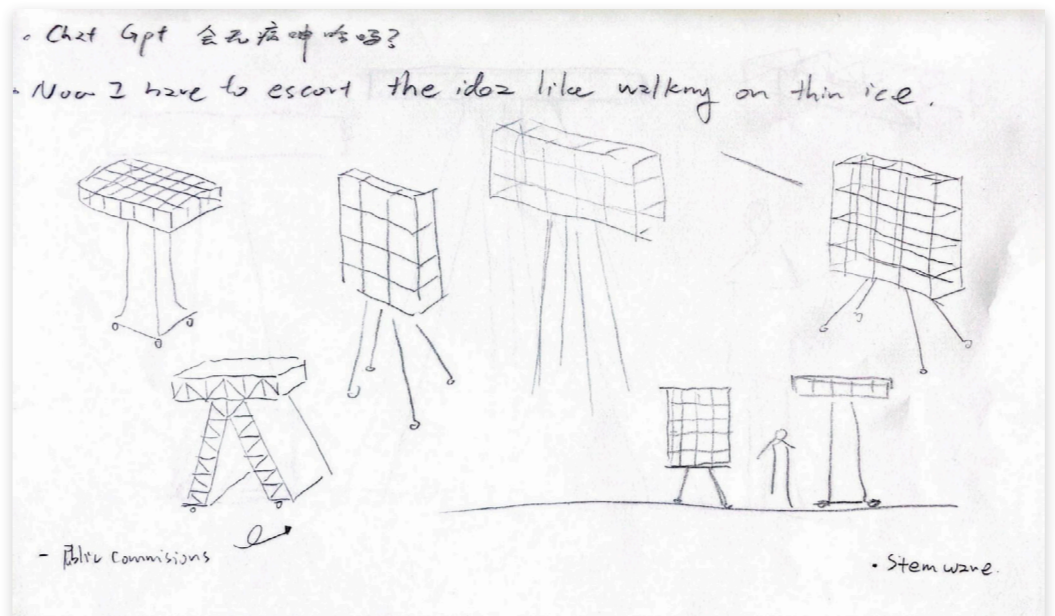 Chat Gpt 会无病呻吟吗?
Now I have to escort the idea like walking on thin ice.
- Public commisions
• Stemware.